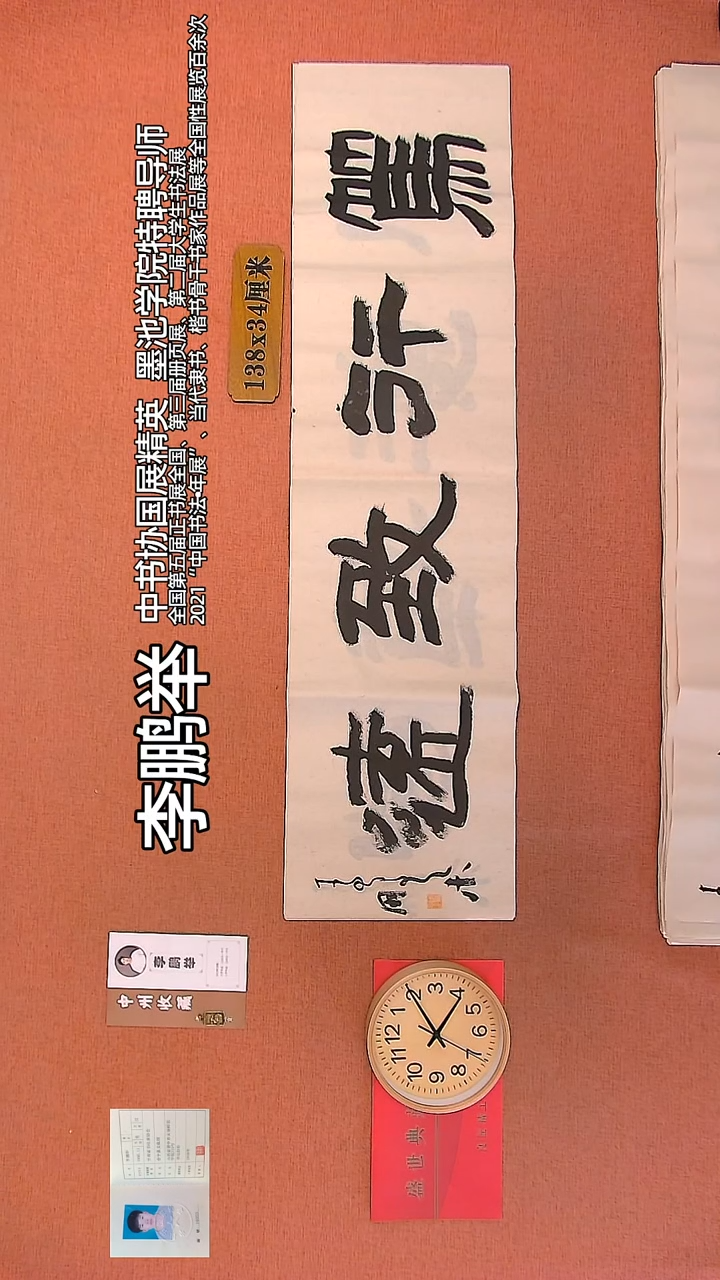 李鹏举
中书协国展精英 墨池学院特聘导师
全国第五届正书展全国、第三届册页展、第二届大学生书法展
2021“中国书法·年展”、当代隶书、楷书骨干书家作品展等全国性展览百余次
138x34厘米
篤行致遠
李鹏举
中州收藏
盛世典
12 1 2 3 4 5 6 7 8 9 10 11